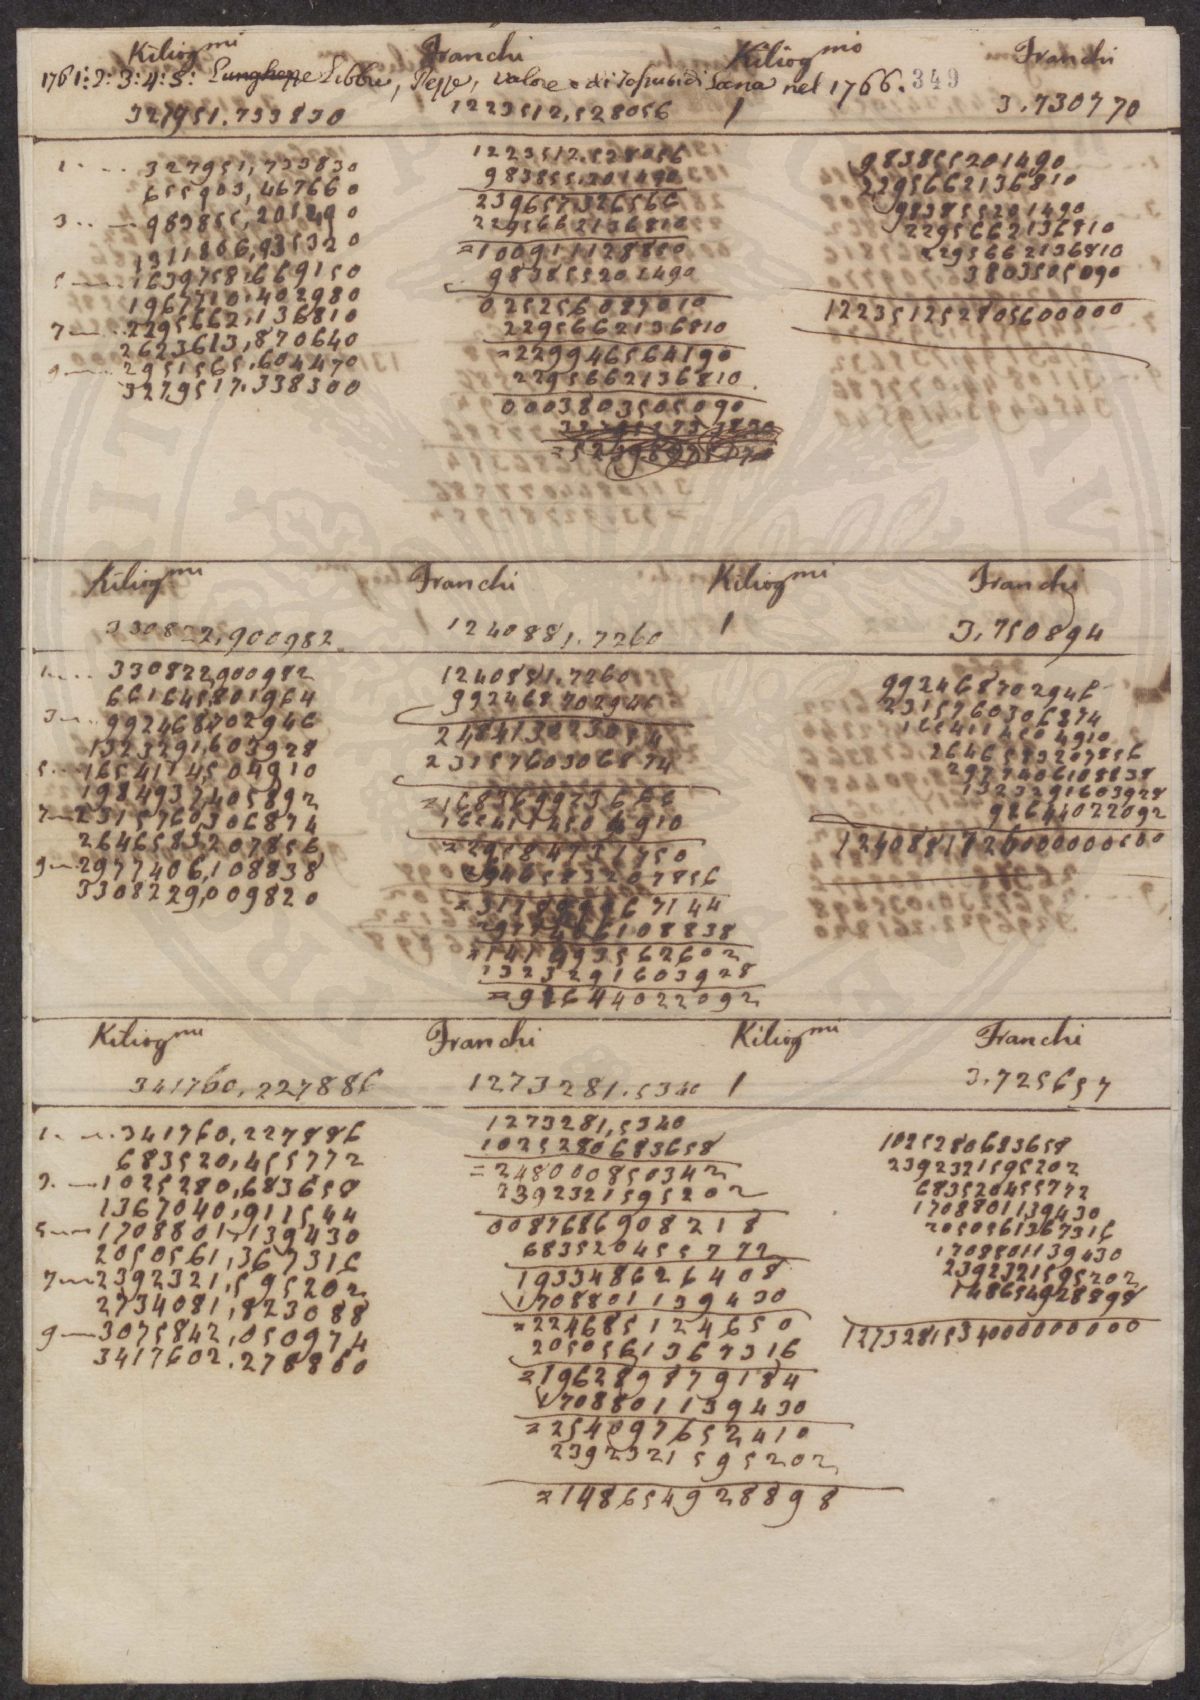 Kiliog mi Franchi Kiliog mo Franchi
1761: 2: 3: 4: 5: Libbre, Pezze, valore di Lana nel 1766. 349
327951.733830 1223512,528056 1 3.730770
1 327951,733830
655903,467660
3 983855,201490
1311806,935320
5 1639758,669150
1967710,402980
7 2295662,136810
2623613,870640
9 2951565,604470
3279517.338300
1223512.528056
983855.201490
239657326566
2295662136810
=100911128850
983855201490
025256087010
2295662136810
=229946564190
2295662136810
0003803505090
983855201490
2295662136810
983855201490
2295662136810
2295662136810
3803505090
122351252805600000
Kiliog mi Franchi Kiliog mi Franchi
330822,900982 1240881.7260 1 3,750894
1 330822900982
661645801964
3 992468702946
1323291,603928
5 1654114504910
1984937,405892
7 2315760,306874
2646583207856
9 2977406,108838
3308229,009820
1240881.7260
992468702946
248413023054
2315760306874
=168369923666
1654114504910
=29584731750
2646583207856
=311889967144
2977406108838
=141493562602
1323291603928
=92644022092
992468702946
2315760306874
1654114504910
2646583207856
2977406108838
1323291603928
92644022092
1240881726000000000
Kiliog mi Franchi Kiliog mi Franchi
341760.227886 1273281.5340 1 3.725657
1 341760.227886
683520,455772
3 1025280,683658
1367040,911544
5 1708801,139430
2050561,367316
7 2392321,595202
2734081,823088
9 3075842,050974
3417602.278860
1273281,5340
1025280683658
=248000850342
2392321595202
0087686908218
683520455772
193348626408
1708801139430
=224685124650
2050561367316
=196289879184
1708801139430
=254097652410
2392321595202
=148654928898
1025280683658
2392321595202
683520455772
1708801139430
2050561367316
1708801139430
2392321595202
148654928898
1273281534000000000